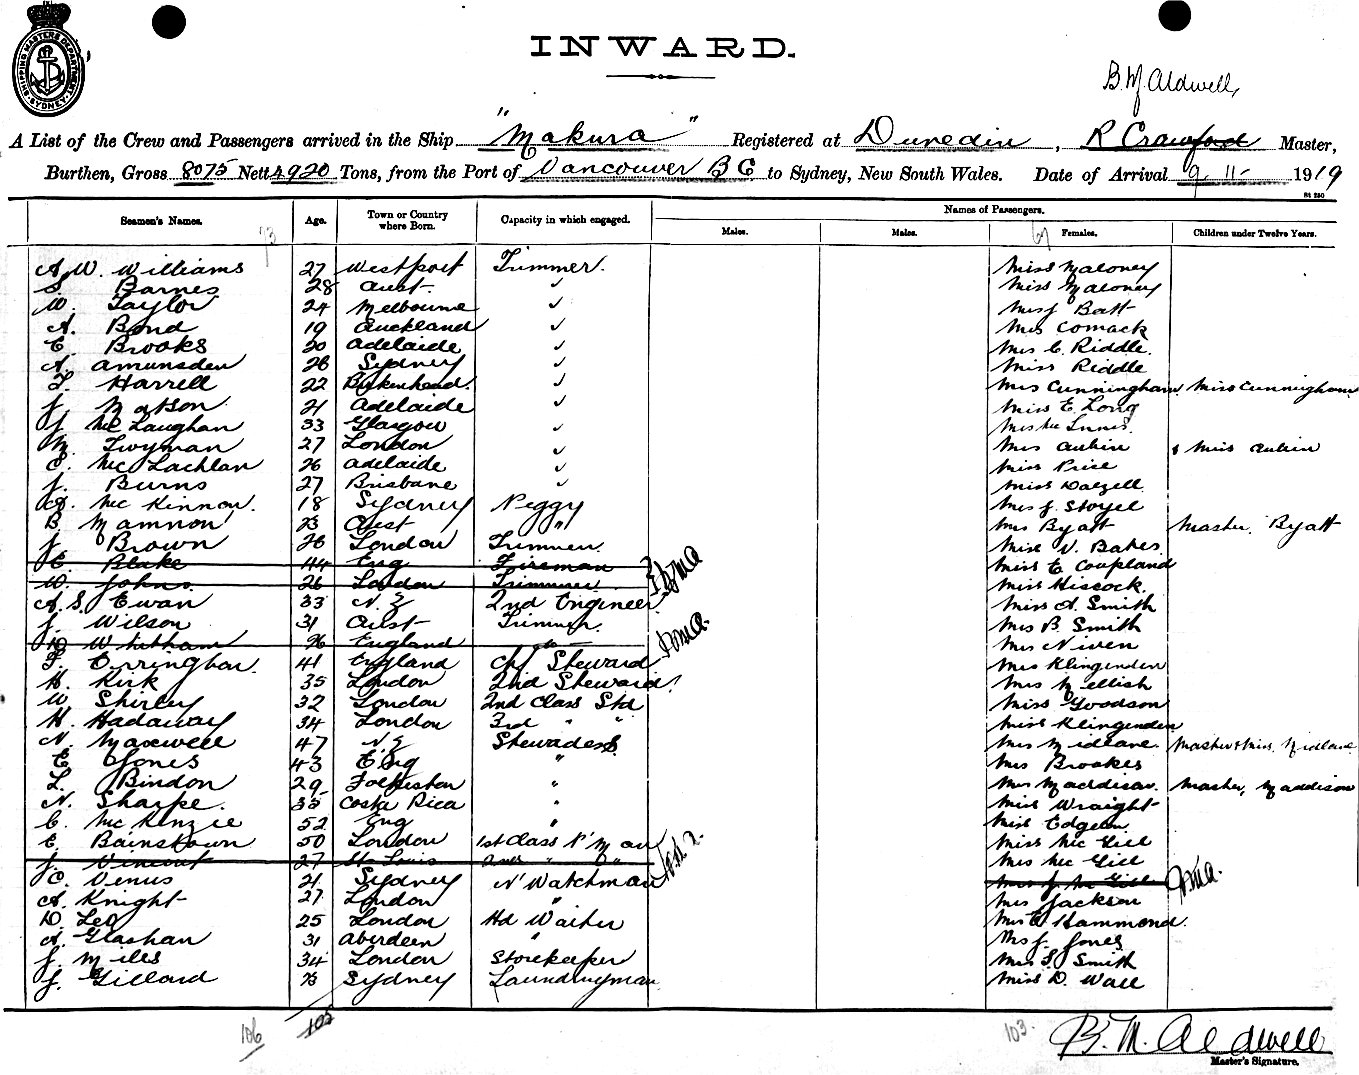 SHIPPING MASTERS DEPARTMENT SYDNEY
INWARD.
B M Aldwell,
A List of the Crew and Passengers arrived in the Ship "Makura" Registered at Dunedin, R Crawford Master,
Burthen, Gross 8075 Nett 4920 Tons, from the Port of Vancouver B C to Sydney, New South Wales. Date of Arrival 9 11- 1919
Seamen's Names. Age. Town or Country where Born. Capacity in which engaged. Names of Passengers.
Males. Males. Females. Children under Twelve Years.
A. W. Williams 27 Westport Trimmer. Miss Maloney
S. Barnes 28 Aust. ✓ Miss Maloney
W. Taylor 24 Melbourne ✓ Miss Batt
A. Bond 19 Auckland ✓ Mrs Comack
E. Brooks 20 Adelaide ✓ Mrs C. Riddle.
A. Amunsden 26 Sydney ✓ Miss Riddle
T. Harrell 22 Birkenhead. ✓ Mrs Cunningham, Miss Cunningham
J. Matson 21 Adelaide ✓ Miss E. Long
J. McLaughan 33 Glasgow ✓ Mrs McInnis.
M. Twyman 27 London ✓ Mrs Aubin & Miss Aubin
C. McLachlan 26 Adelaide ✓ Miss Price
J. Burns 27 Brisbane ✓ Miss Dalzell
McKinnon. 18 Sydney Peggy Mrs J. Stoyel
B. Mamnon 23 Aust " Mrs Byatt Master. Byatt
J. Brown 26 London Trimmer. Miss V. Bates
C. Blake 44 Eng Fireman Miss E Coupland
W. Johns 26 London Trimmer Miss Hiscock.
A. S. Ewan 33 N. Z 2nd Engineer. Miss A. Smith
J. Wilson 31 Aust Trimmer. Miss B. Smith
Witham 26 England Mrs Niven
F. Errington. 41 England Chf Steward Mrs Klingenden
H. Kirk 35 London 2nd Steward. Mrs Mellish
W. Shirley 32 London 2nd Class Std Miss Goodson
H. Hadaway 34 London 3rd " " Miss Klingenden
N. Maxwell 47 N.Z Stewardess Mrs Midlane. Master & Miss. Midlane
E. Jones 43 Eng " Mrs Brookes
L. Bindon 29 Folkeston " Mrs Maddison. Master, Maddison
N. Sharpe. 35 Costa Rica " Miss Wraight
C. McKenzie 52 Eng " Miss Edgeton.
E. Bainstown 50 London 1st Class P'Man Miss McGill
J. Vincent 27 St Louis Mrs McGill
C. Venus 21 Sydney N' Watchman Mrs J. McGill
A. Knight 27 London " Mrs Jackson
D. Leo 25 London Hd Waiter Mrs E Hammond.
A. Glashan 31 Aberdeen " Mrs J. Jones
J. Miles 34 London Storekeeper Mrs S. Smith
J. Gillard 23 Sydney Laundryman Miss D. Wall
106 102 103.
B. M. Aldwell
Master's Signature.